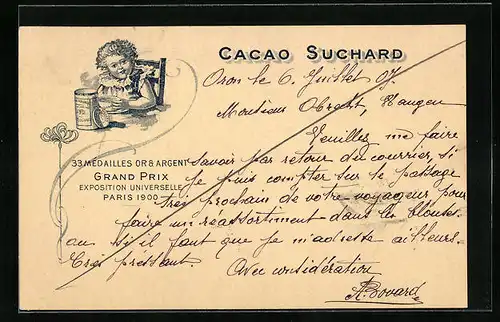 CACAO SUCHARD
Oron le 6 Juillet 07.
Monsieur Obrecht, Wangen
Veuillez me faire
savoir par retour du courrier, si
je puis compter sur le passage
très prochain de votre voyageur pour
faire un réassortiment dans les blouses
ou si il faut que je m'adresse ailleurs.
Très pressant.
Avec considération
A. Bovard
33 MÉDAILLES OR & ARGENT
GRAND PRIX
EXPOSITION UNIVERSELLE
PARIS 1900